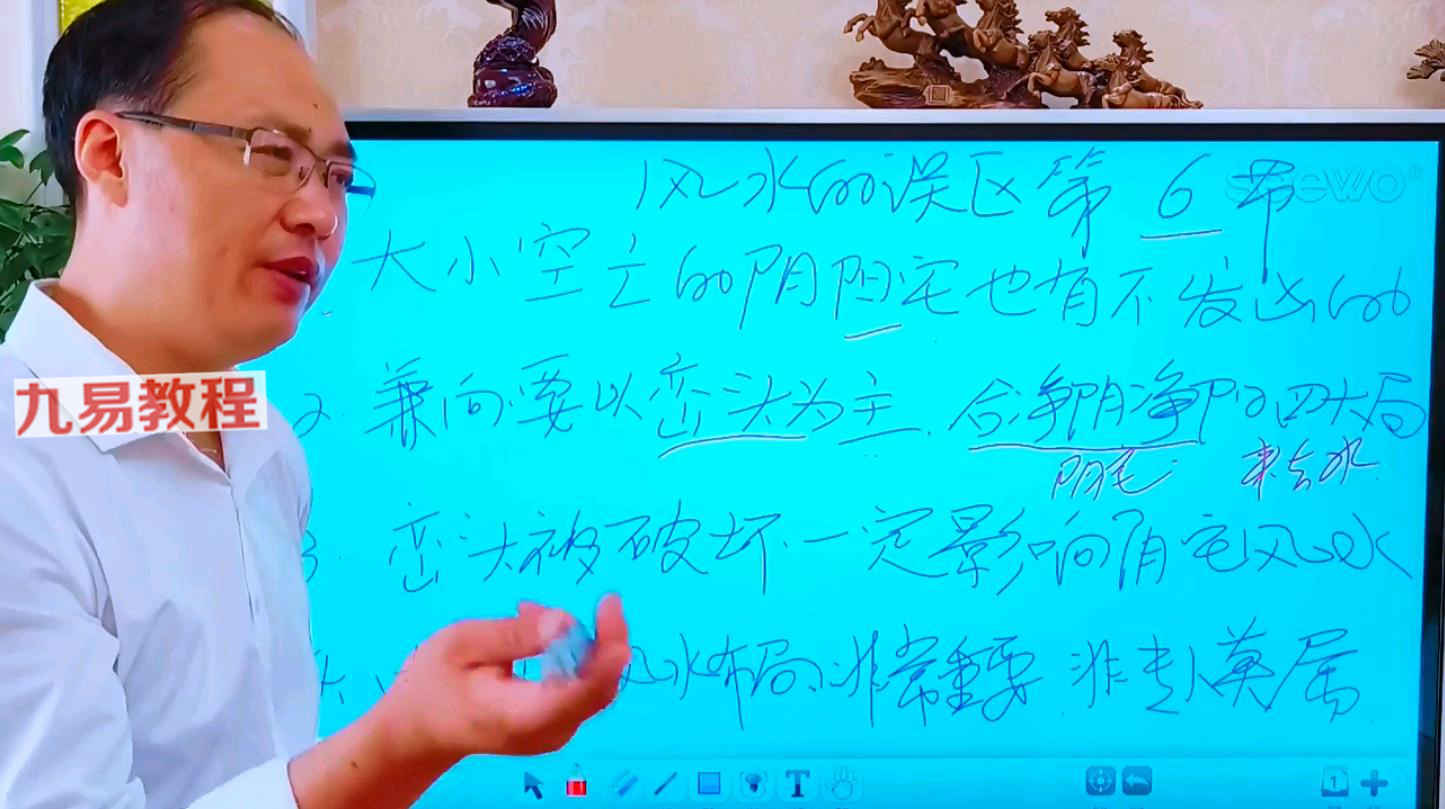 风水的误区第6节
seewo
大小空亡的阴阳宅也有不发凶的
九易教程
2. 兼向要以峦头为主. 合净阴净阳四大局
阴宅 来去水
3. 峦头被破坏一定影响阴宅风水
风水布局非常重要 非专莫属
T
1